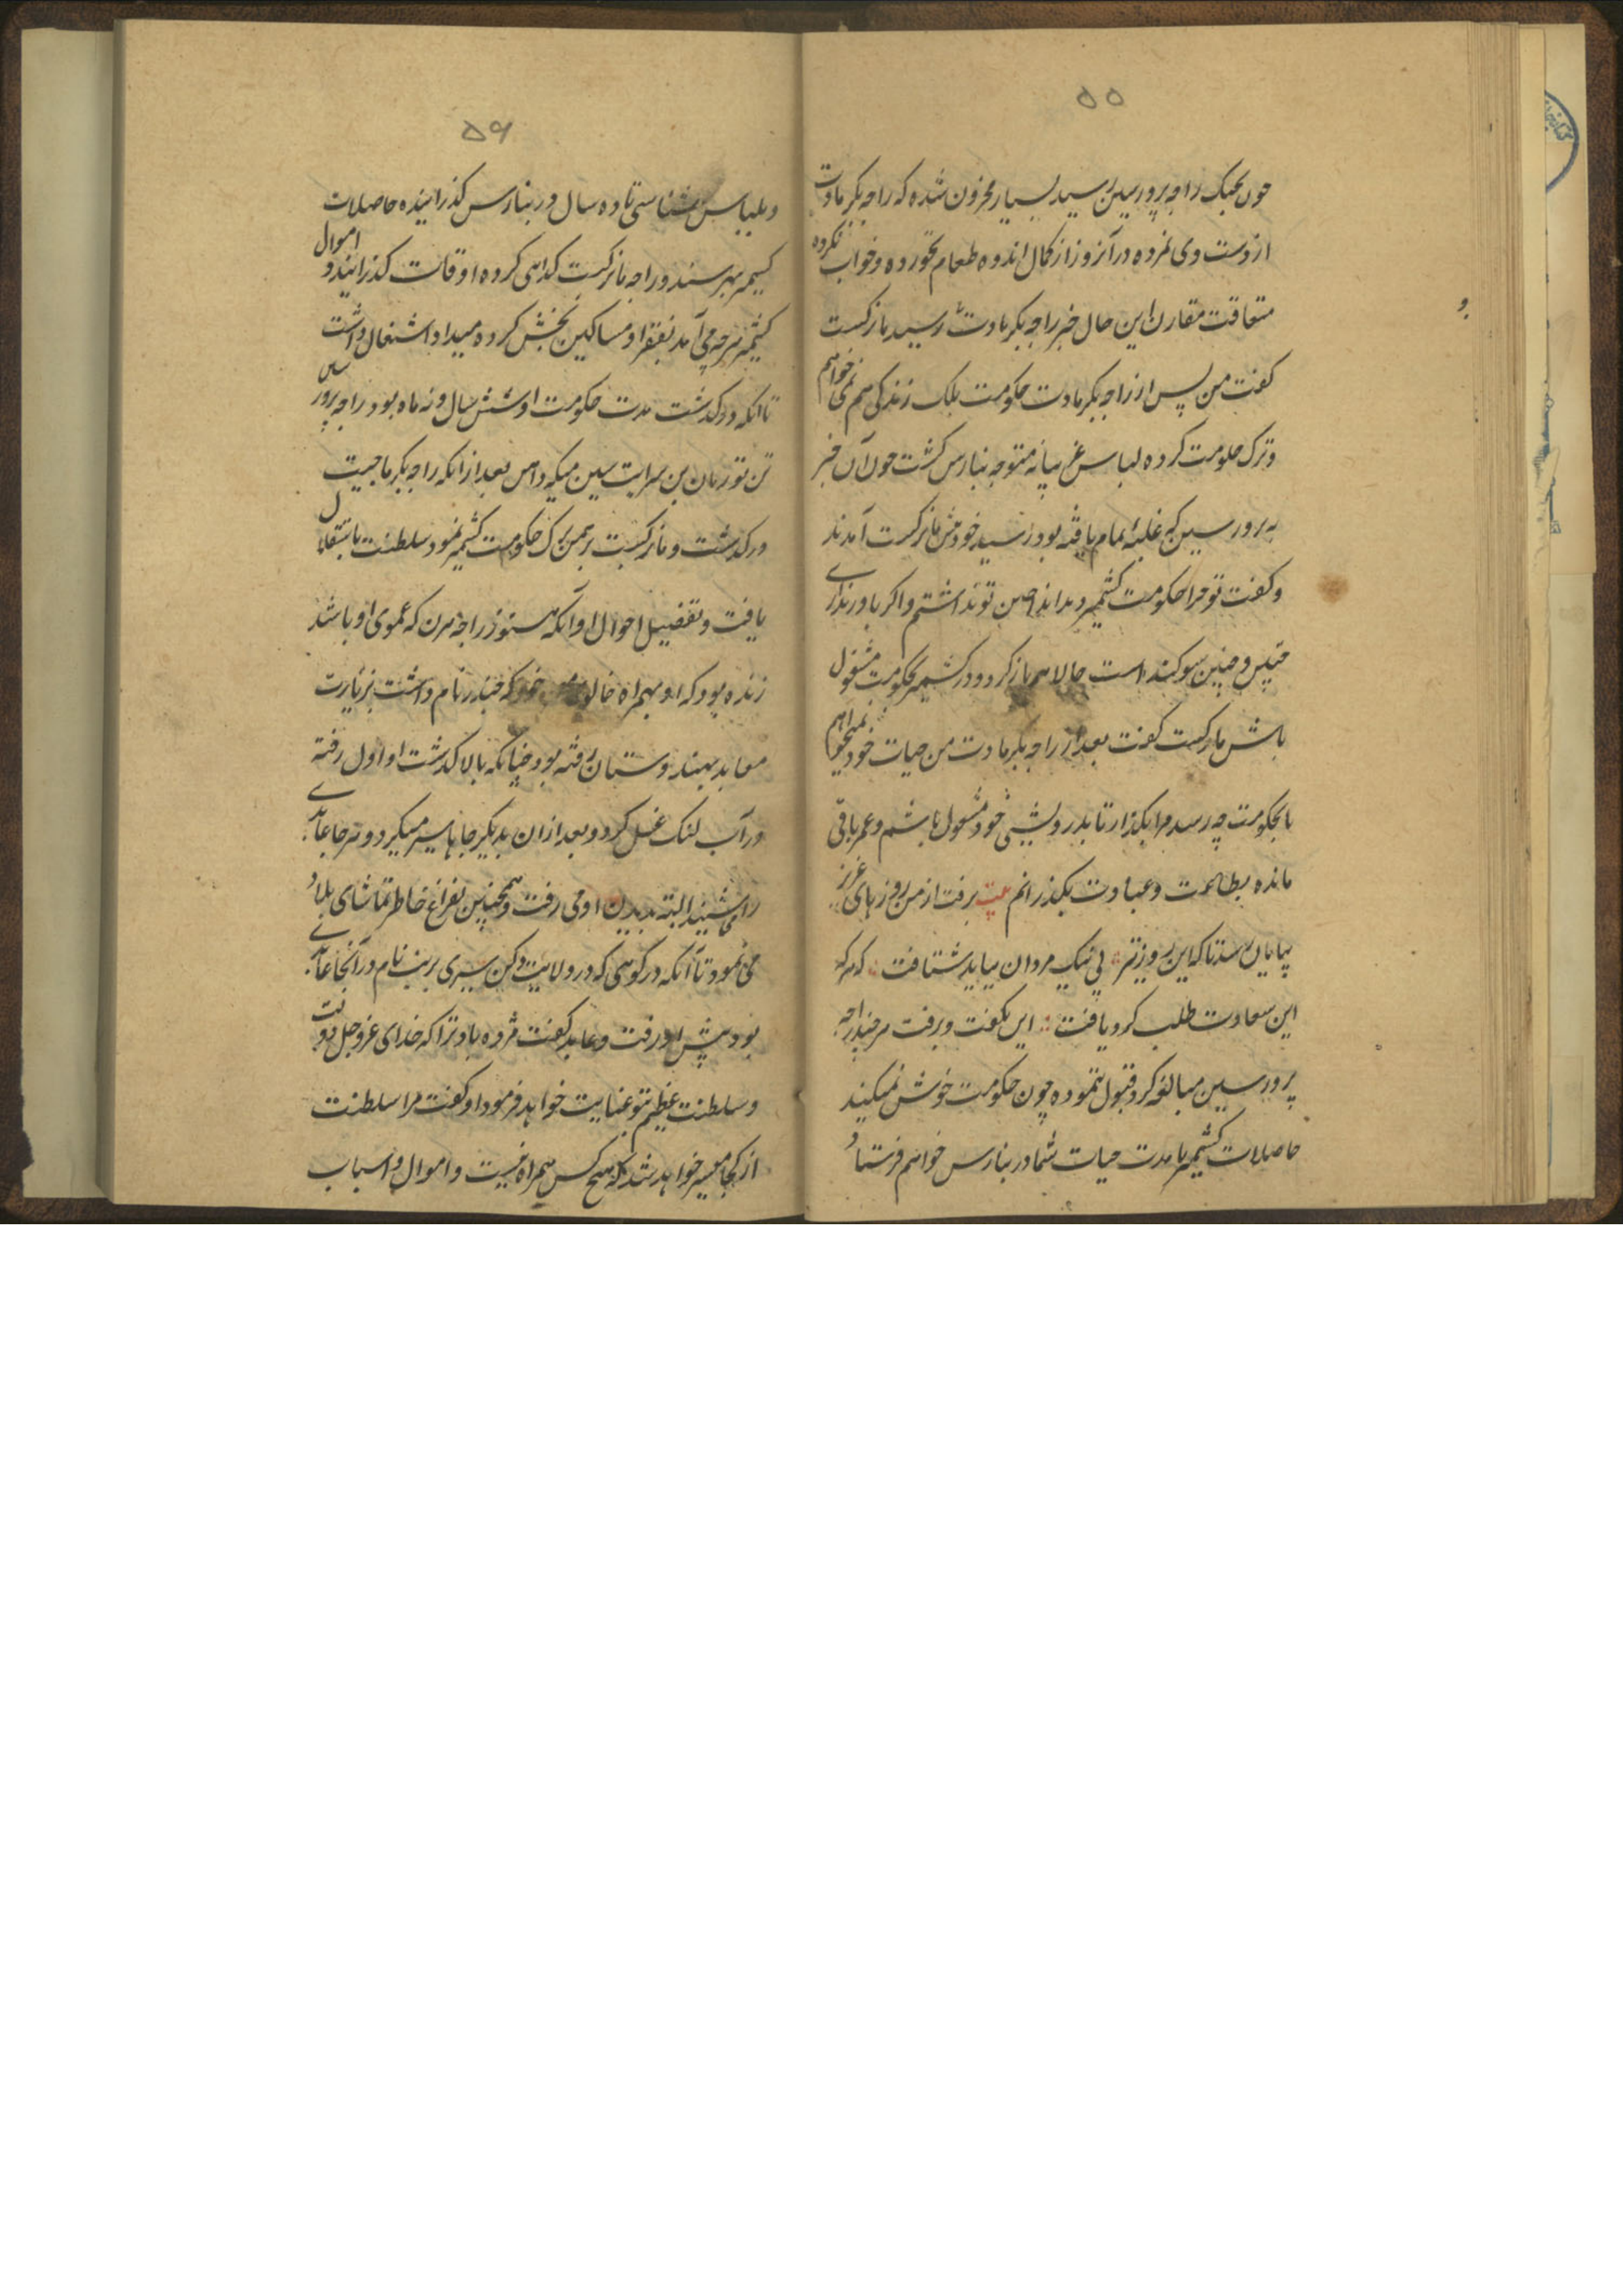 ۵۵
چون بجنگ راجه پرورسین رسید بسیار محزون شده که راجه بکرمادت
از دست وی نمرده در آنروز از کمال اندوه طعام نخورده و خواب نکرده
متعاقب مقارن این حال خبر راجه بکرمادت رسید ماترکست
گفت من پس از راجه بکرمادت حکومت بلک زندگی هم نمی خواهم
و ترک حکومت کرده لباس غریبانه متوجه بنارس گشت چون آن خبر
به پرورسین که غلبه تمام یافته بود رسید خود پیش ماترکست آمدند
و گفت تو چرا حکومت کشمیر و من تو نداشتم و اگر باور نداری
چنین و چنین سوگند است حالا هم بازگرد و در کشمیر بحکومت مشغول
باش ماترکست گفت بعد از راجه بکرمادت من حیات خود نمیخواهم
تا بحکومت چه رسد مرا بگذار تا بدرویشی خود مشغول باشم و عمر باقی
مانده بطاعت و عبادت بگذرانم بیت برفت از من روزهای عزیز
بپایان رسد تا که این روز نیز پی نیک مردان بباید شتافت که هر که
این سعادت طلب کرد یافت این بگفت و برفت هر چند راجه
پرورسین مبالغه کرد قبول ننموده چون حکومت خوش نمیکنید
حاصلات کشمیر تا مدت حیات شما در بنارس خواهم فرستاد
۵۶
و بلباس شناسی تا ده سال در بنارس گذرانیده حاصلات
کشمیر میرسید و راجه ماترکست گدایی کرده اوقات گذرانید و اموال
کشمیر هرچه می آمد بفقرا و مساکین بخش کرده میداد اشتغال داشت
تا آنکه درگذشت مدت حکومت او شش سال و نه ماه بود راجه پرورسین
بن تورمان بن میکهداهن بعد از آنکه راجه بکرماجیت
درگذشت و ماترکست برهمن ترک حکومت کشمیر نمود سلطنت باستقلال
یافت و تفصیل احوال او آنکه هنوز راجه هرن که عموی او باشد
زنده بود که او بهمراه خالوی خود که چندر نام داشت بزیارت
معابد بهندوستان رفته بود چنانکه بالا گذشت او اول رفته
در آب گنگ غسل کرد و بعد از آن بدیگر جاها سیر میکرد و هر جا عابدی
را می شنید البته بدیدن او می رفت و همچنین بفراغ خاطر تماشای بلاد
می نمود تا آنکه در کوهی که در ولایت دکن سری پربت نام در آنجا عابدی
بود پیش او رفت و عابد گفت مژده باد ترا که خدای عز و جل دولت
و سلطنت عظیم بتو عنایت خواهد فرمود او گفت مرا سلطنت
از کجا میسر خواهد شد که هیچ کس همراه نیست و اموال و اسباب